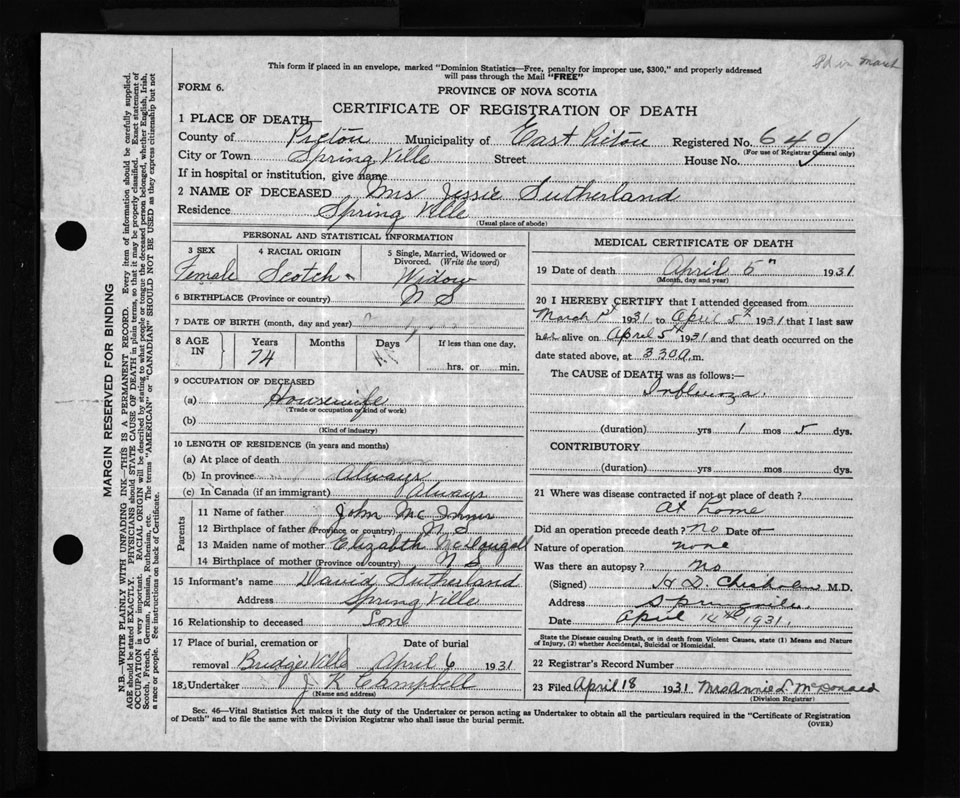 This form if placed in an envelope, marked "Dominion Statistics—Free, penalty for improper use, $300," and properly addressed
will pass through the Mail "FREE"
FORM 6.
PROVINCE OF NOVA SCOTIA
CERTIFICATE OF REGISTRATION OF DEATH
1 PLACE OF DEATH—
County of Pictou Municipality of East Pictou Registered No. 640
(For use of Registrar General only)
City or Town Spring Ville Street House No.
If in hospital or institution, give name
2 NAME OF DECEASED Mrs Jessie Sutherland
Residence Spring Ville
(Usual place of abode)
PERSONAL AND STATISTICAL INFORMATION
3 SEX 4 RACIAL ORIGIN 5 Single, Married, Widowed or Divorced. (Write the word)
Female Scotch Widow
6 BIRTHPLACE (Province or country) N S
7 DATE OF BIRTH (month, day and year)
8 AGE IN Years Months Days If less than one day,
74
hrs. or min.
9 OCCUPATION OF DECEASED
(a) Housewife
(Trade or occupation or kind of work)
(b)
(Kind of industry)
10 LENGTH OF RESIDENCE (in years and months)
(a) At place of death
(b) In province Always
(c) In Canada (if an immigrant) Always
Parents
11 Name of father John Mc Innis
12 Birthplace of father (Province or country) N S
13 Maiden name of mother Elizabeth McDougall
14 Birthplace of mother (Province or country) N S
15 Informant's name David Sutherland
Address Spring Ville
16 Relationship to deceased Son
17 Place of burial, cremation or removal Bridge Ville Date of burial April 6 1931
18 Undertaker J K Campbell
(Name and address)
MEDICAL CERTIFICATE OF DEATH
19 Date of death April 5" 1931
(Month, day and year)
20 I HEREBY CERTIFY that I attended deceased from
March 1st 1931 to April 5th 1931 that I last saw
her alive on April 5th 1931 and that death occurred on the
date stated above, at 3 30 a.m.
The CAUSE of DEATH was as follows:—
Influenza.
(duration) yrs 1 mos 5 dys.
CONTRIBUTORY
(duration) yrs. mos. dys.
21 Where was disease contracted if not at place of death?
At home
Did an operation precede death? no Date of
Nature of operation none
Was there an autopsy? no
(Signed) H D. Chisholm M.D.
Address Springville
Date April 14th 1931.
State the Disease causing Death, or in death from Violent Causes, state (1) Means and Nature
of Injury, (2) whether Accidental, Suicidal or Homicidal.
22 Registrar's Record Number
23 Filed April 18 1931 Mrs Annie L McDonald
(Division Registrar)
Sec. 46—Vital Statistics Act makes it the duty of the Undertaker or person acting as Undertaker to obtain all the particulars required in the "Certificate of Registration
of Death" and to file the same with the Division Registrar who shall issue the burial permit.
(OVER)
MARGIN RESERVED FOR BINDING
N.B.—WRITE PLAINLY WITH UNFADING INK—THIS IS A PERMANENT RECORD. Every item of information should be carefully supplied.
AGE should be stated EXACTLY. PHYSICIANS should STATE CAUSE OF DEATH in plain terms, so that it may be properly classified. Exact statement of
OCCUPATION is very important. RACIAL ORIGIN will be described by stating to what people or tongue the deceased person belonged, whether English, Irish,
Scotch, French, German, Russian, Ruthenian, etc. The terms "AMERICAN" or "CANADIAN" SHOULD NOT BE USED as they express citizenship but not
a race or people. See instructions on back of Certificate.